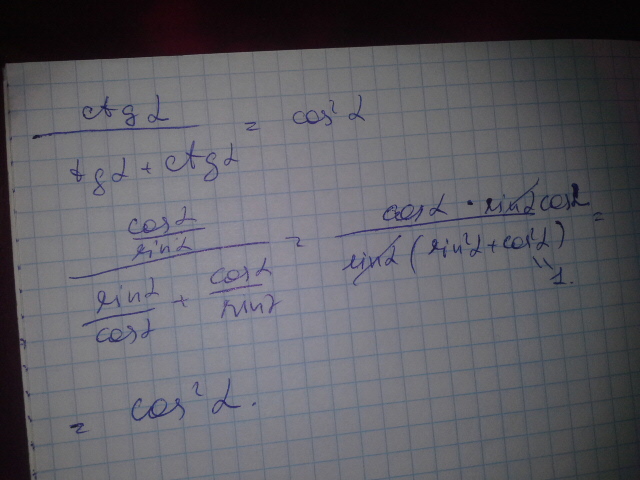 ctg α / (tg α + ctg α) = cos² α
(cos α / sin α) / (sin α / cos α + cos α / sin α) = cos α · sin α cos α / (sin α (sin² α + cos² α)) =
1.
= cos² α.